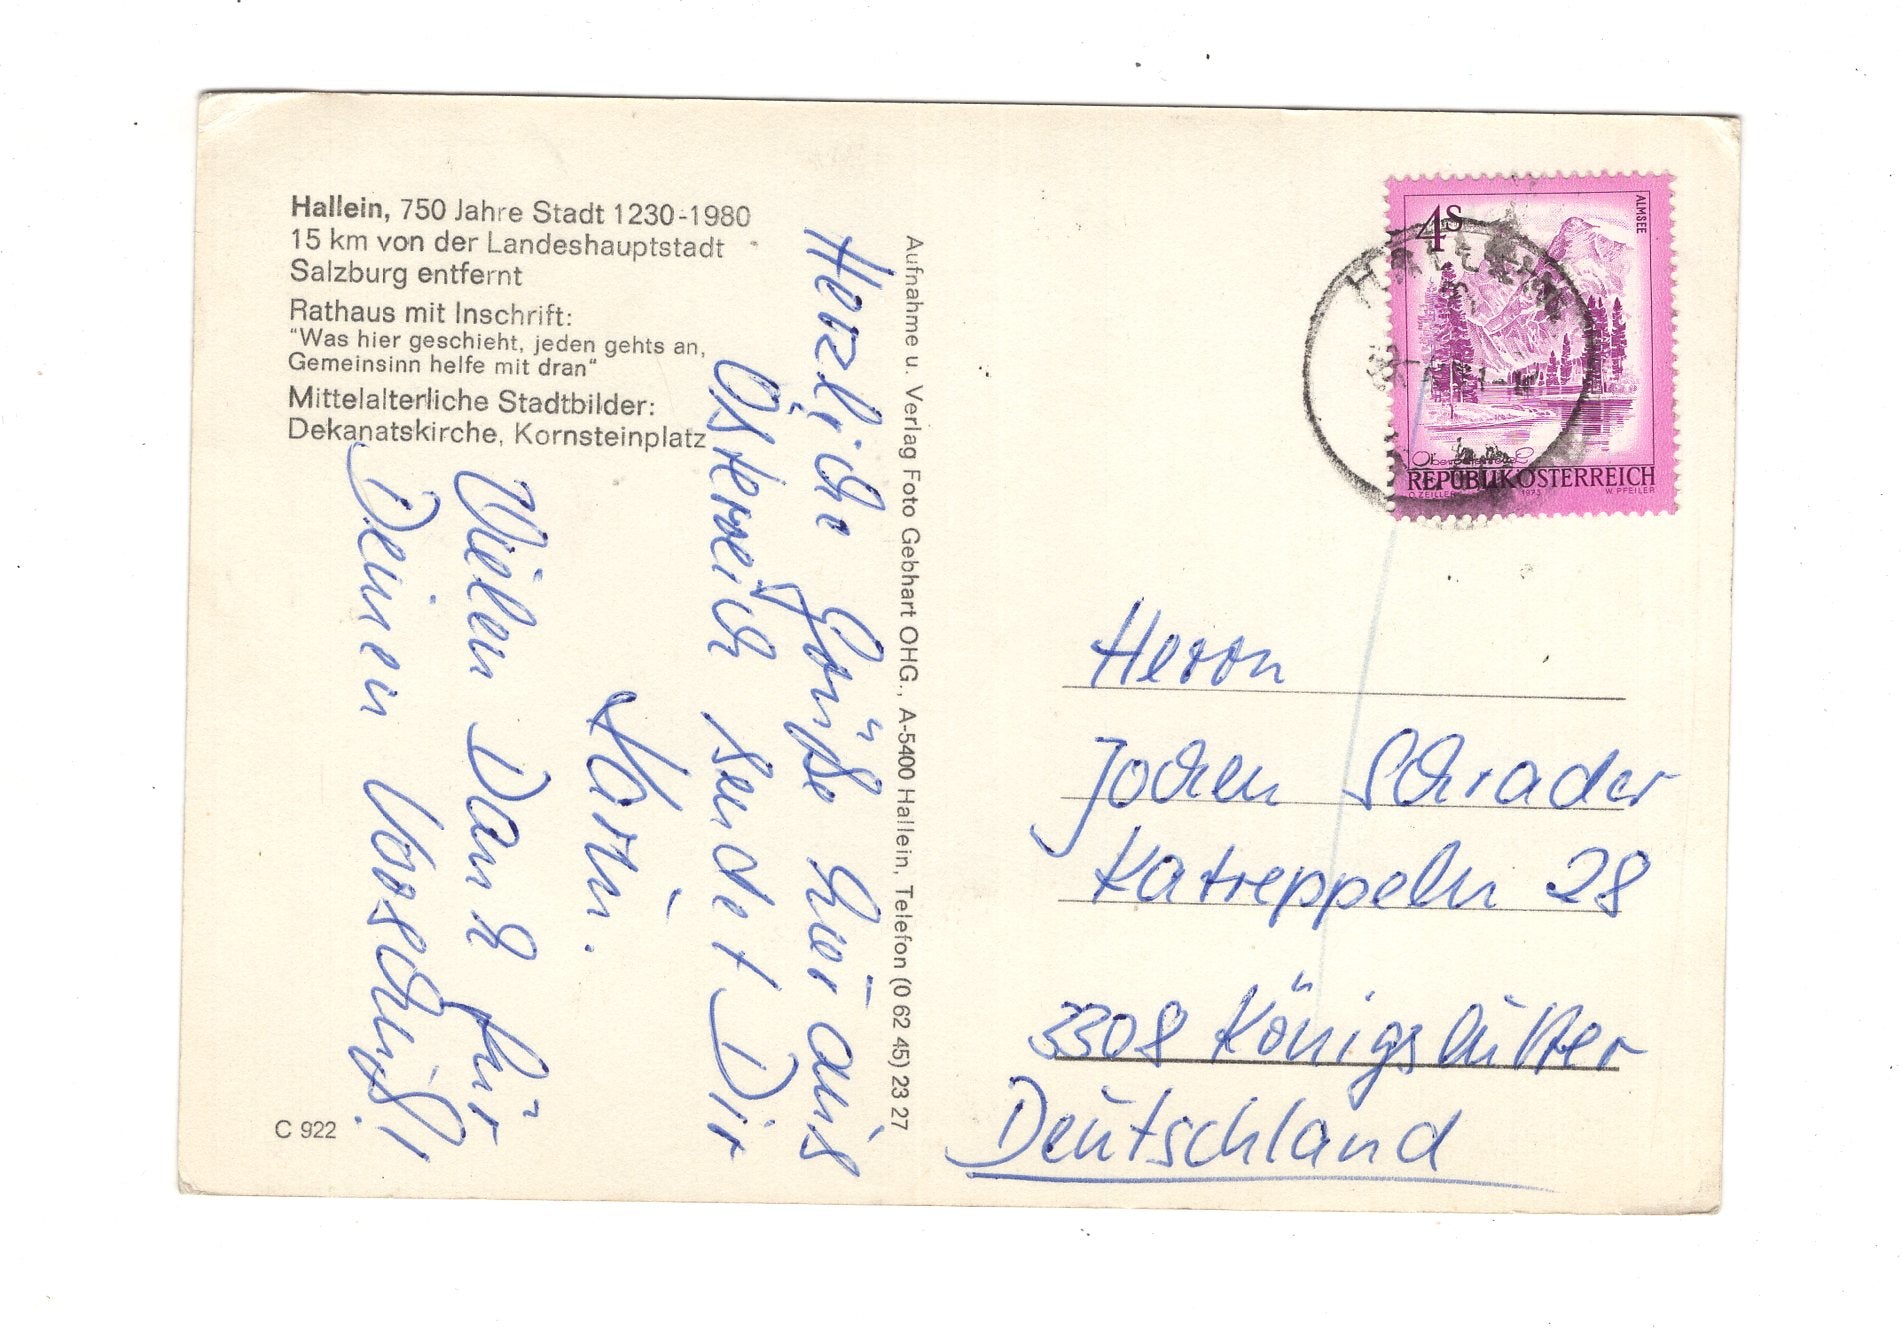 Hallein, 750 Jahre Stadt 1230-1980
15 km von der Landeshauptstadt
Salzburg entfernt
Rathaus mit Inschrift:
"Was hier geschieht, jeden gehts an,
Gemeinsinn helfe mit dran"
Mittelalterliche Stadtbilder:
Dekanatskirche, Kornsteinplatz
Herzliche Grüße hier aus
Österreich sendet Dir
Martin.
Vielen Dank für
Deinen Vorschuß!
C 922
Aufnahme u. Verlag Foto Gebhart OHG., A-5400 Hallein, Telefon (0 62 45) 23 27
4S
ALMSEE
HALLEIN
REPUBLIK ÖSTERREICH
O. ZEILLER 1973 W. PFEILER
Herrn
Jochen Schrader
Katreppeln 28
3308 Königslutter
Deutschland